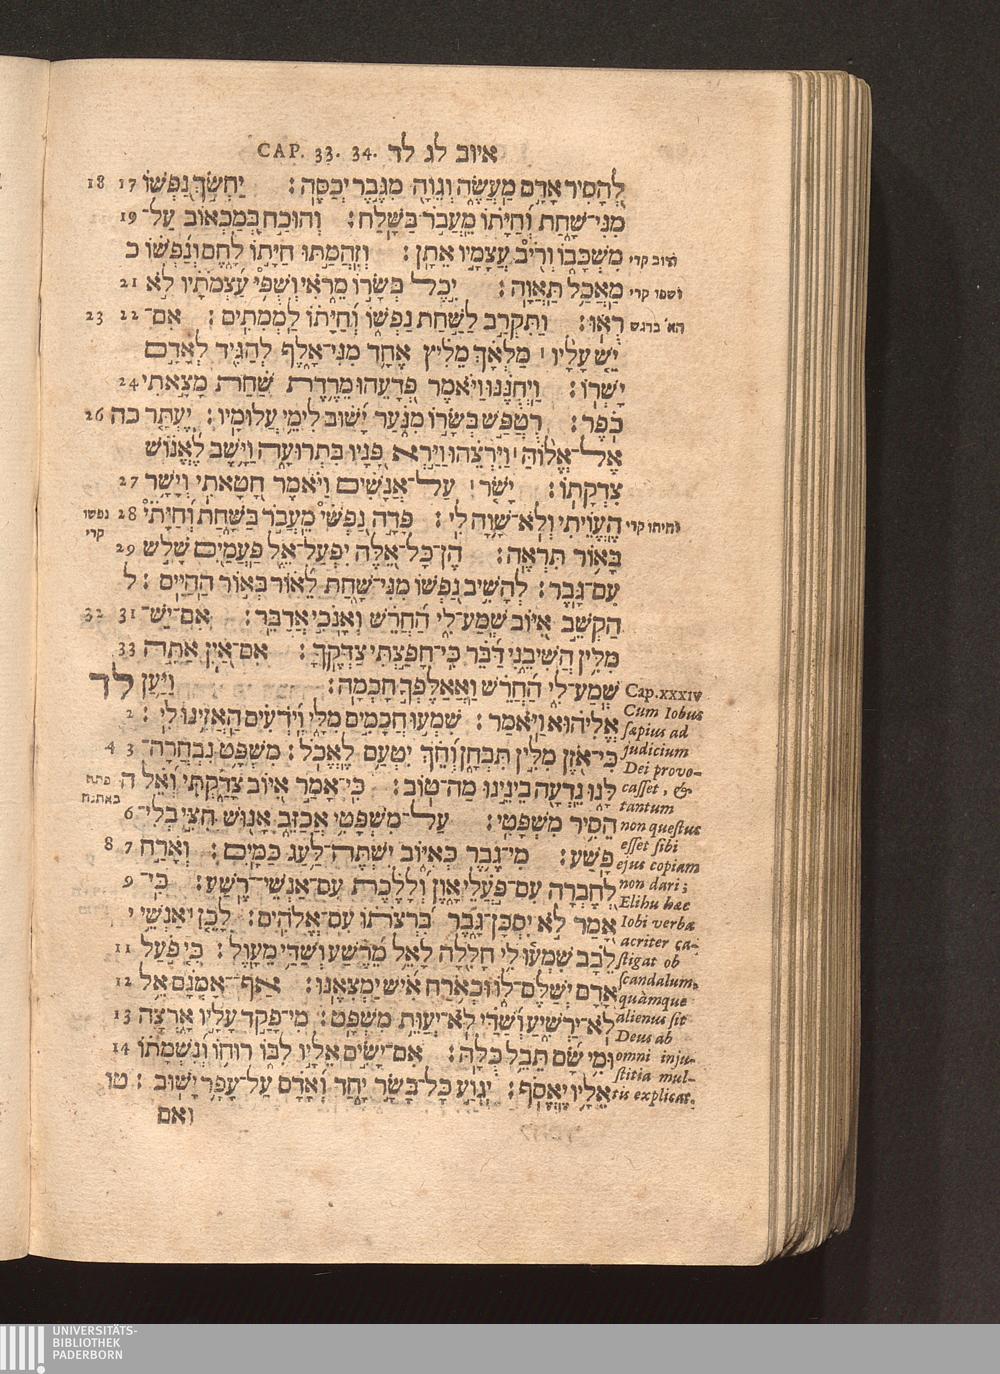 איוב לג לד CAP. 33. 34.
לְהָסִיר אָדָם מַעֲשֶׂה וְגֵוָה מִגֶּבֶר יְכַסֶּה׃ יַחְשֹׂךְ נַפְשׁוֹ 17 18
מִנִּי־שָׁחַת וְחַיָּתוֹ מֵעֲבֹר בַּשָּׁלַח׃ וְהוּכַח בְּמַכְאוֹב עַל־ 19
מִשְׁכָּבוֹ וְרִיב עֲצָמָיו אֵתָן׃ וְזִהֲמַתּוּ חַיָּתוֹ לָחֶם וְנַפְשׁוֹ כ
מַאֲכַל תַּאֲוָה׃ יִכֶל בְּשָׂרוֹ מֵרֹאִי וְשֻׁפִּי עַצְמֹתָיו לֹא 21
רֻאּוּ׃ וַתִּקְרַב לַשַּׁחַת נַפְשׁוֹ וְחַיָּתוֹ לַמְמִתִים׃ אִם־ 22 23
יֵשׁ עָלָיו ׀ מַלְאָךְ מֵלִיץ אֶחָד מִנִּי־אָלֶף לְהַגִּיד לְאָדָם
יָשְׁרוֹ׃ וַיְחֻנֶּנּוּ וַיֹּאמֶר פְּדָעֵהוּ מֵרֶדֶת שַׁחַת מָצָאתִי 24
כֹפֶר׃ רֻטֲפַשׁ בְּשָׂרוֹ מִנֹּעַר יָשׁוּב לִימֵי עֲלוּמָיו׃ יֶעְתַּר כה 26
אֶל־אֱלוֹהַּ ׀ וַיִּרְצֵהוּ וַיַּרְא פָּנָיו בִּתְרוּעָה וַיָּשֶׁב לֶאֱנוֹשׁ
צִדְקָתוֹ׃ יָשֹׁר ׀ עַל־אֲנָשִׁים וַיֹּאמֶר חָטָאתִי וְיָשָׁר 27
הֶעֱוֵיתִי וְלֹא־שָׁוָה לִי׃ פָּדָה נַפְשִׁי מֵעֲבֹר בַּשָּׁחַת וְחַיָּתִי 28
בָּאוֹר תִּרְאֶה׃ הֶן־כָּל־אֵלֶּה יִפְעַל־אֵל פַּעֲמַיִם שָׁלֹשׁ 29
עִם־גָּבֶר׃ לְהָשִׁיב נַפְשׁוֹ מִנִּי־שָׁחַת לֵאוֹר בְּאוֹר הַחַיִּים׃ ל
הַקְשֵׁב אִיּוֹב שְׁמַע־לִי הַחֲרֵשׁ וְאָנֹכִי אֲדַבֵּר׃ אִם־יֵשׁ־ 31 32
מִלִּין הֲשִׁיבֵנִי דַּבֵּר כִּי־חָפַצְתִּי צַדְּקֶךָּ׃ אִם־אַיִן אַתָּה 33
שְׁמַע־לִי הַחֲרֵשׁ וַאֲאַלֶּפְךָ חָכְמָה׃ וַיַּעַן לד
אֱלִיהוּא וַיֹּאמַר׃ שִׁמְעוּ חֲכָמִים מִלָּי וְיֹדְעִים הַאֲזִינוּ לִי׃ 2
כִּי־אֹזֶן מִלִּין תִּבְחָן וְחֵךְ יִטְעַם לֶאֱכֹל׃ מִשְׁפָּט נִבְחֲרָה־ 3 4
לָּנוּ נֵדְעָה בֵינֵינוּ מַה־טּוֹב׃ כִּי־אָמַר אִיּוֹב צָדַקְתִּי וְאֵל ה
הֵסִיר מִשְׁפָּטִי׃ עַל־מִשְׁפָּטִי אֲכַזֵּב אָנוּשׁ חִצִּי בְלִי־ 6
פָשַׁע׃ מִי־גֶבֶר כְּאִיּוֹב יִשְׁתֶּה־לַּעַג כַּמָּיִם׃ וְאָרַח 7 8
לְחֶבְרָה עִם־פֹּעֲלֵי אָוֶן וְלָלֶכֶת עִם־אַנְשֵׁי־רֶשַׁע׃ כִּי־ 9
אָמַר לֹא יִסְכָּן־גָּבֶר בִּרְצֹתוֹ עִם־אֱלֹהִים׃ לָכֵן ׀ אַנְשֵׁי י
לֵבָב שִׁמְעוּ לִי חָלִלָה לָאֵל מֵרֶשַׁע וְשַׁדַּי מֵעָוֶל׃ כִּי פֹעַל 11
אָדָם יְשַׁלֶּם־לוֹ וּכְאֹרַח אִישׁ יַמְצִאֶנּוּ׃ אַף־אָמְנָם אֵל 12
לֹא־יַרְשִׁיעַ וְשַׁדַּי לֹא־יְעַוֵּת מִשְׁפָּט׃ מִי־פָקַד עָלָיו אָרְצָה 13
וּמִי שָׂם תֵּבֵל כֻּלָּהּ׃ אִם־יָשִׂים אֵלָיו לִבּוֹ רוּחוֹ וְנִשְׁמָתוֹ 14
אֵלָיו יֶאֱסֹף׃ יִגְוַע כָּל־בָּשָׂר יָחַד וְאָדָם עַל־עָפָר יָשׁוּב׃ טו
ואם
וריב קרי
ושפו קרי
הא׳ בדגש
וחיתו קרי
נפשו
קרי
פתח
באתנח
Cap. XXXIV
Cum Iobus
sæpius ad
judicium
Dei provo-
casset, &
tantum
non questus
esset sibi
ejus copiam
non dari;
Elihu hæc
Iobi verba
acriter ca-
stigat ob
scandalum,
quàmque
alienus sit
Deus ab
omni inju-
stitia mul-
tis explicat.
UNIVERSITÄTS-
BIBLIOTHEK
PADERBORN